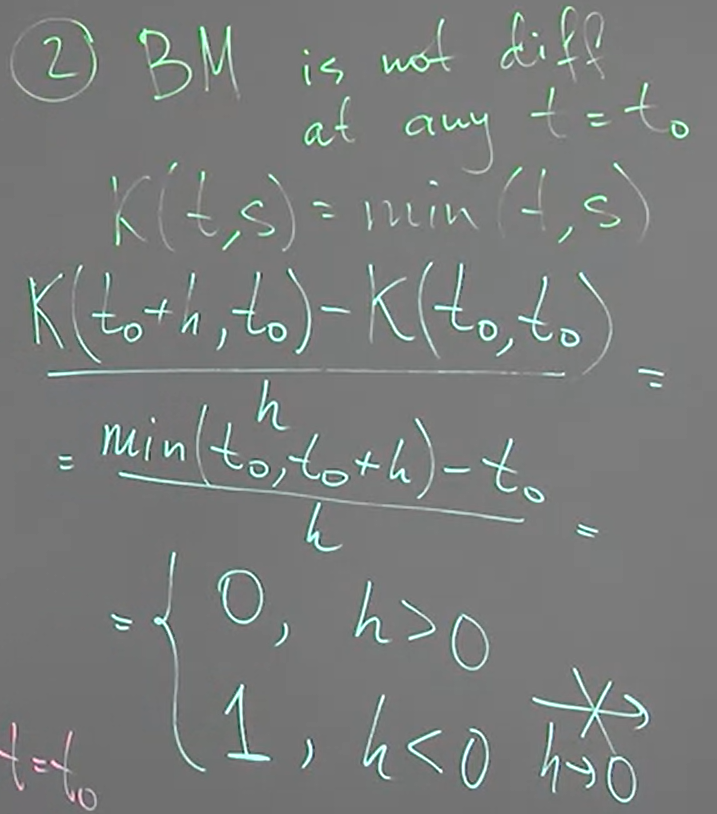 ② BM is not diff
at any t = t₀
K(t,s) = min(t,s)
K(t₀+h, t₀) - K(t₀, t₀)
h
=
= min(t₀, t₀+h) - t₀
h
=
= { 0, h > 0
1, h < 0
h→0
t=t₀